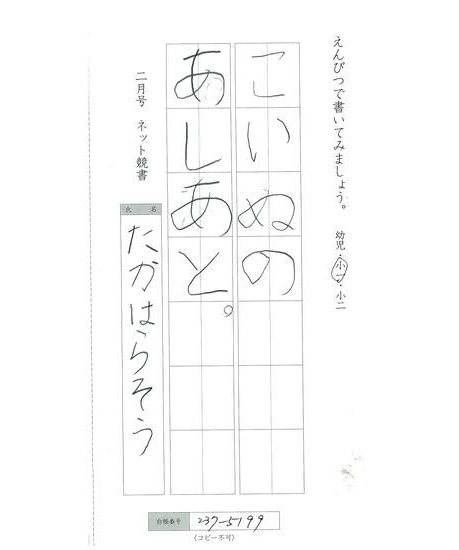 えんぴつで書いてみましょう。
幼児・小一・小二
こいぬの
あしあと。
二月号 ネット競書
氏名
たかはらそう
台帳番号
237-5199
(コピー不可)